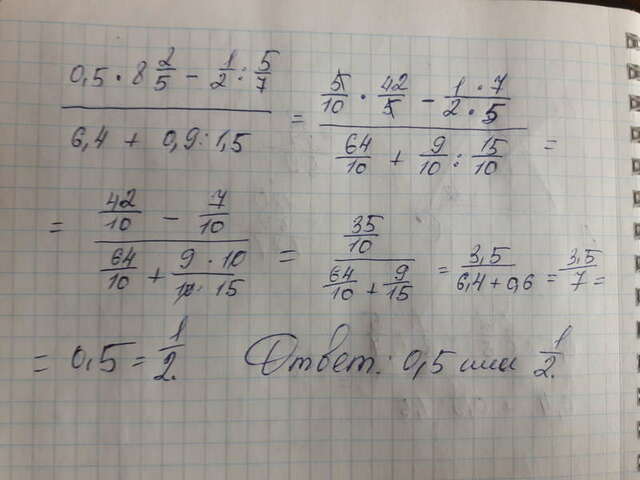 (0,5 · 8 2/5 − 1/2 : 5/7) / (6,4 + 0,9 : 1,5) = (5/10 · 42/5 − (1 · 7)/(2 · 5)) / (64/10 + 9/10 : 15/10) =
= (42/10 − 7/10) / (64/10 + (9 · 10)/(10 · 15)) = (35/10) / (64/10 + 9/15) = 3,5/(6,4 + 0,6) = 3,5/7 =
= 0,5 = 1/2. Ответ: 0,5 или 1/2.